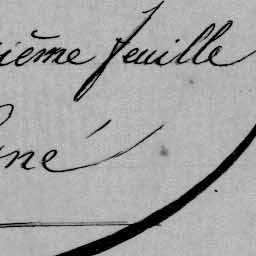 ième feuille
gné